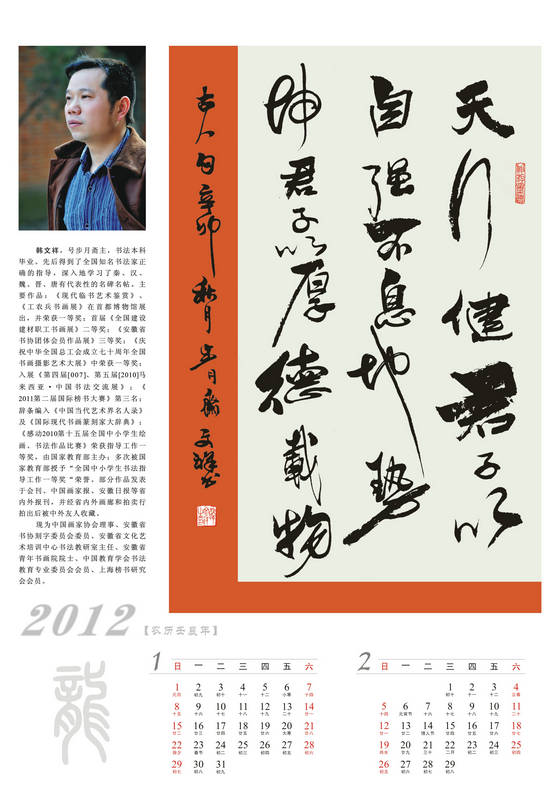 天行健君子以
自强不息地势
坤君子以厚德载物
古人句辛卯秋月步月斋文祥书
韩文祥，号步月斋主，书法本科
毕业，先后得到了全国知名书法家正
确的指导，深入地学习了秦、汉、
魏、晋、唐有代表性的名碑名帖，主
要作品：《现代临书艺术鉴赏》、
《工农兵书画展》在首都博物馆展
出，并荣获一等奖；首届《全国建设
建材职工书画展》二等奖；《安徽省
书协团体会员作品展》三等奖；《庆
祝中华全国总工会成立七十周年全国
书画摄影艺术大展》中荣获一等奖；
入展《第四届[007]、第五届[2010]马
来西亚·中国书法交流展》；《
2011第二届国际榜书大赛》第三名；
辞条编入《中国当代艺术界名人录》
及《国际现代书画篆刻家大辞典》；
《感动2010第十五届全国中小学生绘
画、书法作品比赛》荣获指导工作一
等奖，由国家教育部主办；多次被国
家教育部授予"全国中小学生书法指
导工作一等奖"荣誉。部分作品发表
于会刊、中国画家报、安徽日报等省
内外报刊，并经省内外画廊和拍卖行
拍出后被中外友人收藏。
现为中国画家协会理事、安徽省
书协刻字委员会委员、安徽省文化艺
术培训中心书法教研室主任、安徽省
青年书画院院士、中国教育学会书法
教育专业委员会会员、上海榜书研究
会会员。
2012【农历壬辰年】
龍
1 日 一 二 三 四 五 六
1 2 3 4 5 6 7
元旦 初九 初十 十一 十二 小寒 十四
8 9 10 11 12 13 14
十五 十六 十七 十八 十九 二十 廿一
15 16 17 18 19 20 21
廿二 廿三 廿四 廿五 廿六 大寒 廿八
22 23 24 25 26 27 28
除夕 春节 初二 初三 初四 初五 初六
29 30 31
初七 初八 初九
2 日 一 二 三 四 五 六
1 2 3 4
初十 十一 十二 立春
5 6 7 8 9 10 11
十四 元宵节 十六 十七 十八 十九 二十
12 13 14 15 16 17 18
廿一 廿二 情人节 廿四 廿五 廿六 廿七
19 20 21 22 23 24 25
雨水 廿九 三十 二月 初二 初三 初四
26 27 28 29
初五 初六 初七 初八